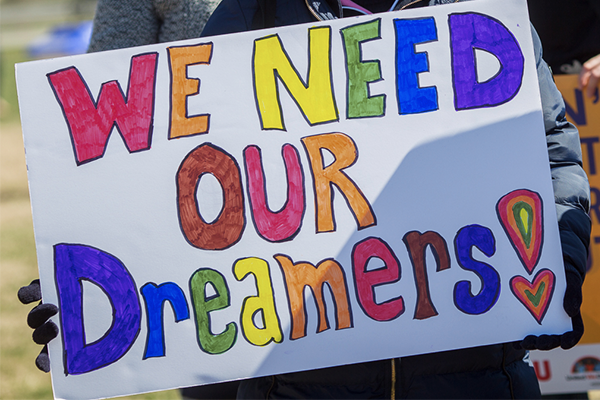 WE NEED
OUR
Dreamers!